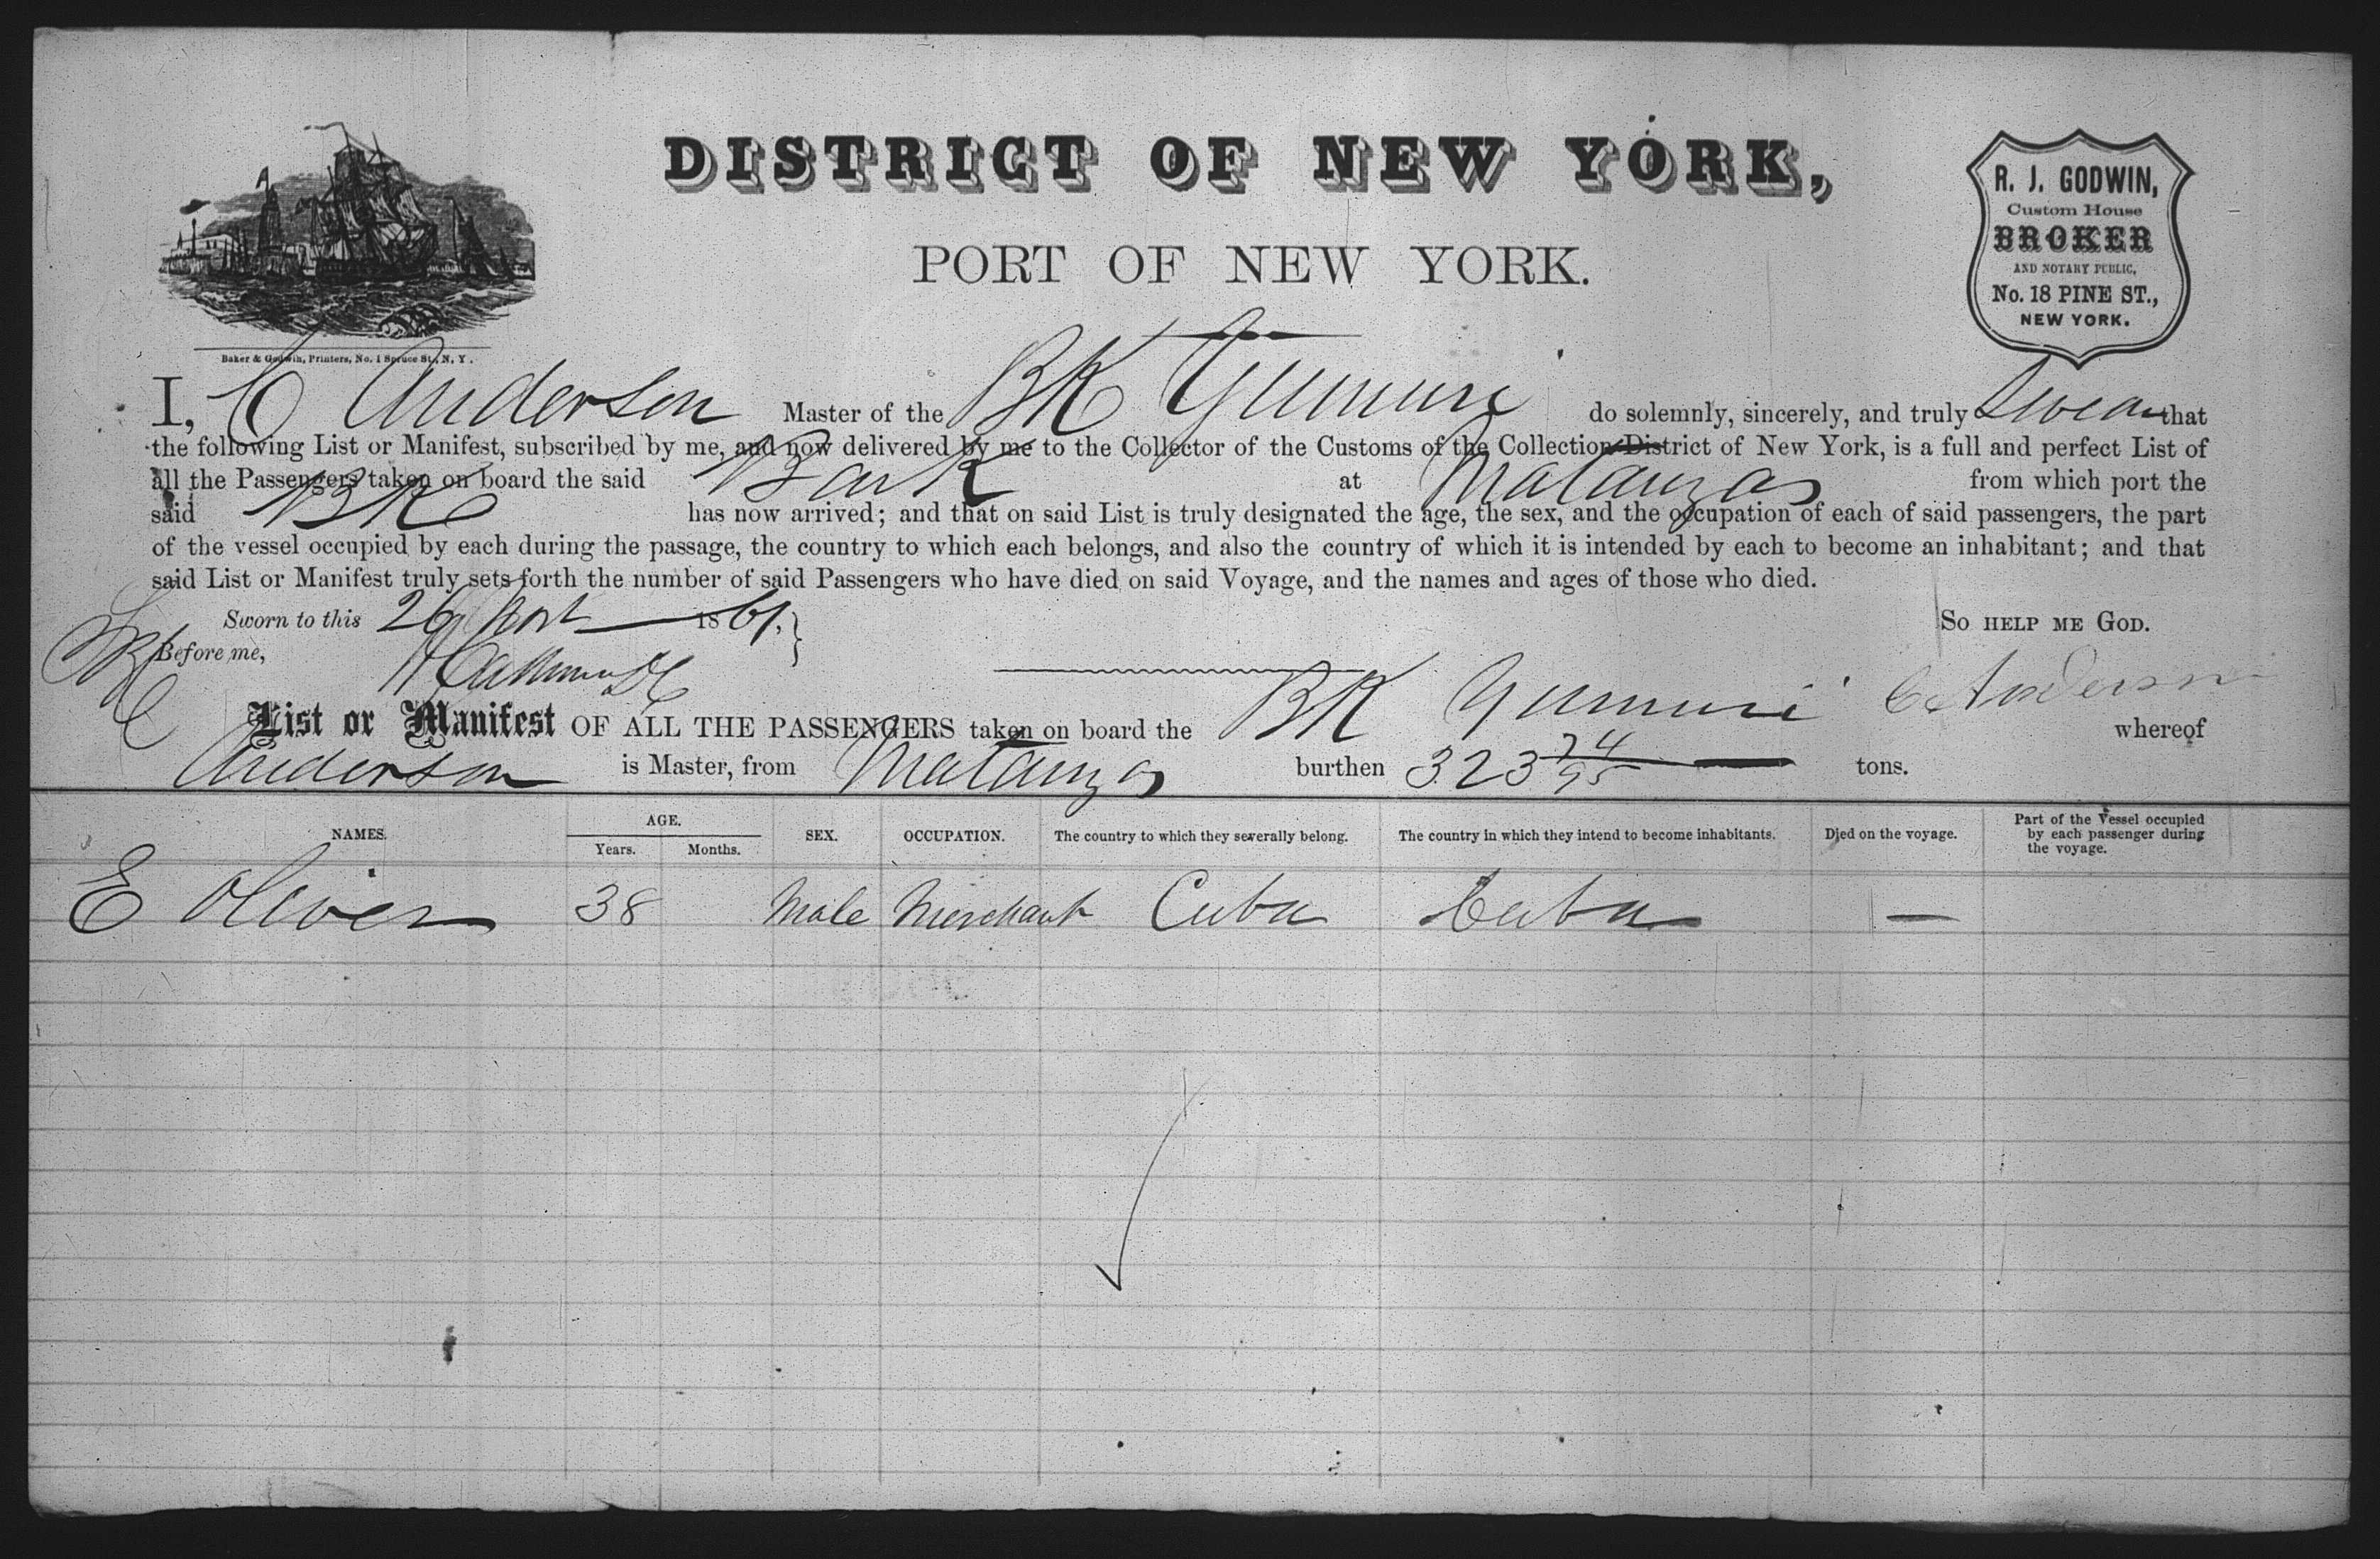 DISTRICT OF NEW YORK,
PORT OF NEW YORK.
R. J. GODWIN,
Custom House
BROKER
AND NOTARY PUBLIC,
No. 18 PINE ST.,
NEW YORK.
Baker & Godwin, Printers, No. 1 Spruce St., N. Y.
I, C Anderson Master of the BK Yumuri do solemnly, sincerely, and truly Swear that
the following List or Manifest, subscribed by me, and now delivered by me to the Collector of the Customs of the Collection District of New York, is a full and perfect List of
all the Passengers taken on board the said Bark at Matanzas from which port the
said BK has now arrived; and that on said List is truly designated the age, the sex, and the occupation of each of said passengers, the part
of the vessel occupied by each during the passage, the country to which each belongs, and also the country of which it is intended by each to become an inhabitant; and that
said List or Manifest truly sets forth the number of said Passengers who have died on said Voyage, and the names and ages of those who died.
Sworn to this 26 1861. So HELP ME GOD.
Before me,
C Anderson
List or Manifest OF ALL THE PASSENGERS taken on board the BK Yumuri whereof
Anderson is Master, from Matanzas burthen 323 74/95 tons.
NAMES. AGE. Years. Months. SEX. OCCUPATION. The country to which they severally belong. The country in which they intend to become inhabitants. Died on the voyage. Part of the Vessel occupied by each passenger during the voyage.
E Oliver 38 Male Merchant Cuba Cuba —